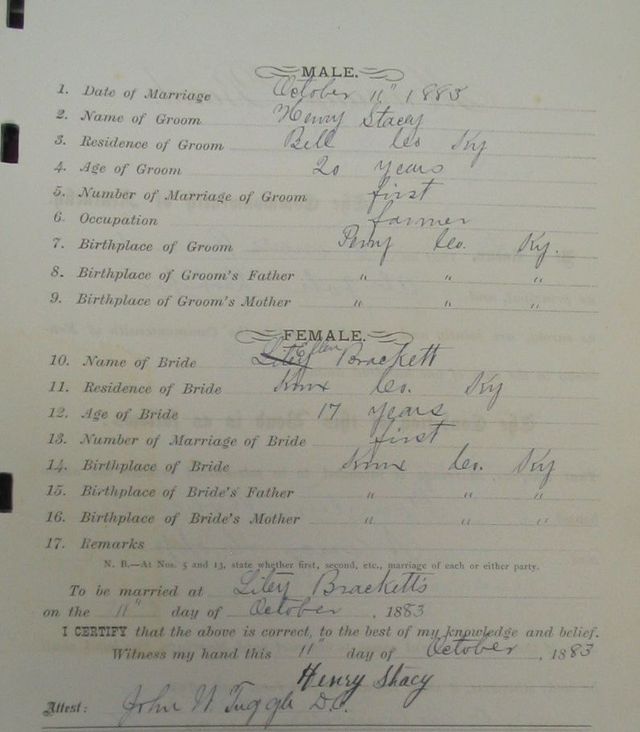 MALE.
1. Date of Marriage October 11" 1883
2. Name of Groom Henry Stacy
3. Residence of Groom Bell Co Ky
4. Age of Groom 20 years
5. Number of Marriage of Groom first
6. Occupation farmer
7. Birthplace of Groom Perry Co. Ky.
8. Birthplace of Groom's Father " " "
9. Birthplace of Groom's Mother " " "
FEMALE.
10. Name of Bride Ellen Brackett
11. Residence of Bride Knox Co. Ky
12. Age of Bride 17 years
13. Number of Marriage of Bride first
14. Birthplace of Bride Knox Co. Ky
15. Birthplace of Bride's Father " " "
16. Birthplace of Bride's Mother " " "
17. Remarks
N. B.—At Nos. 5 and 13, state whether first, second, etc., marriage of each or either party.
To be married at Litey Brackett's
on the 11" day of October, 1883
I CERTIFY that the above is correct, to the best of my knowledge and belief.
Witness my hand this 11" day of October, 1883
Henry Stacy
Attest: John W Tuggle D.C.